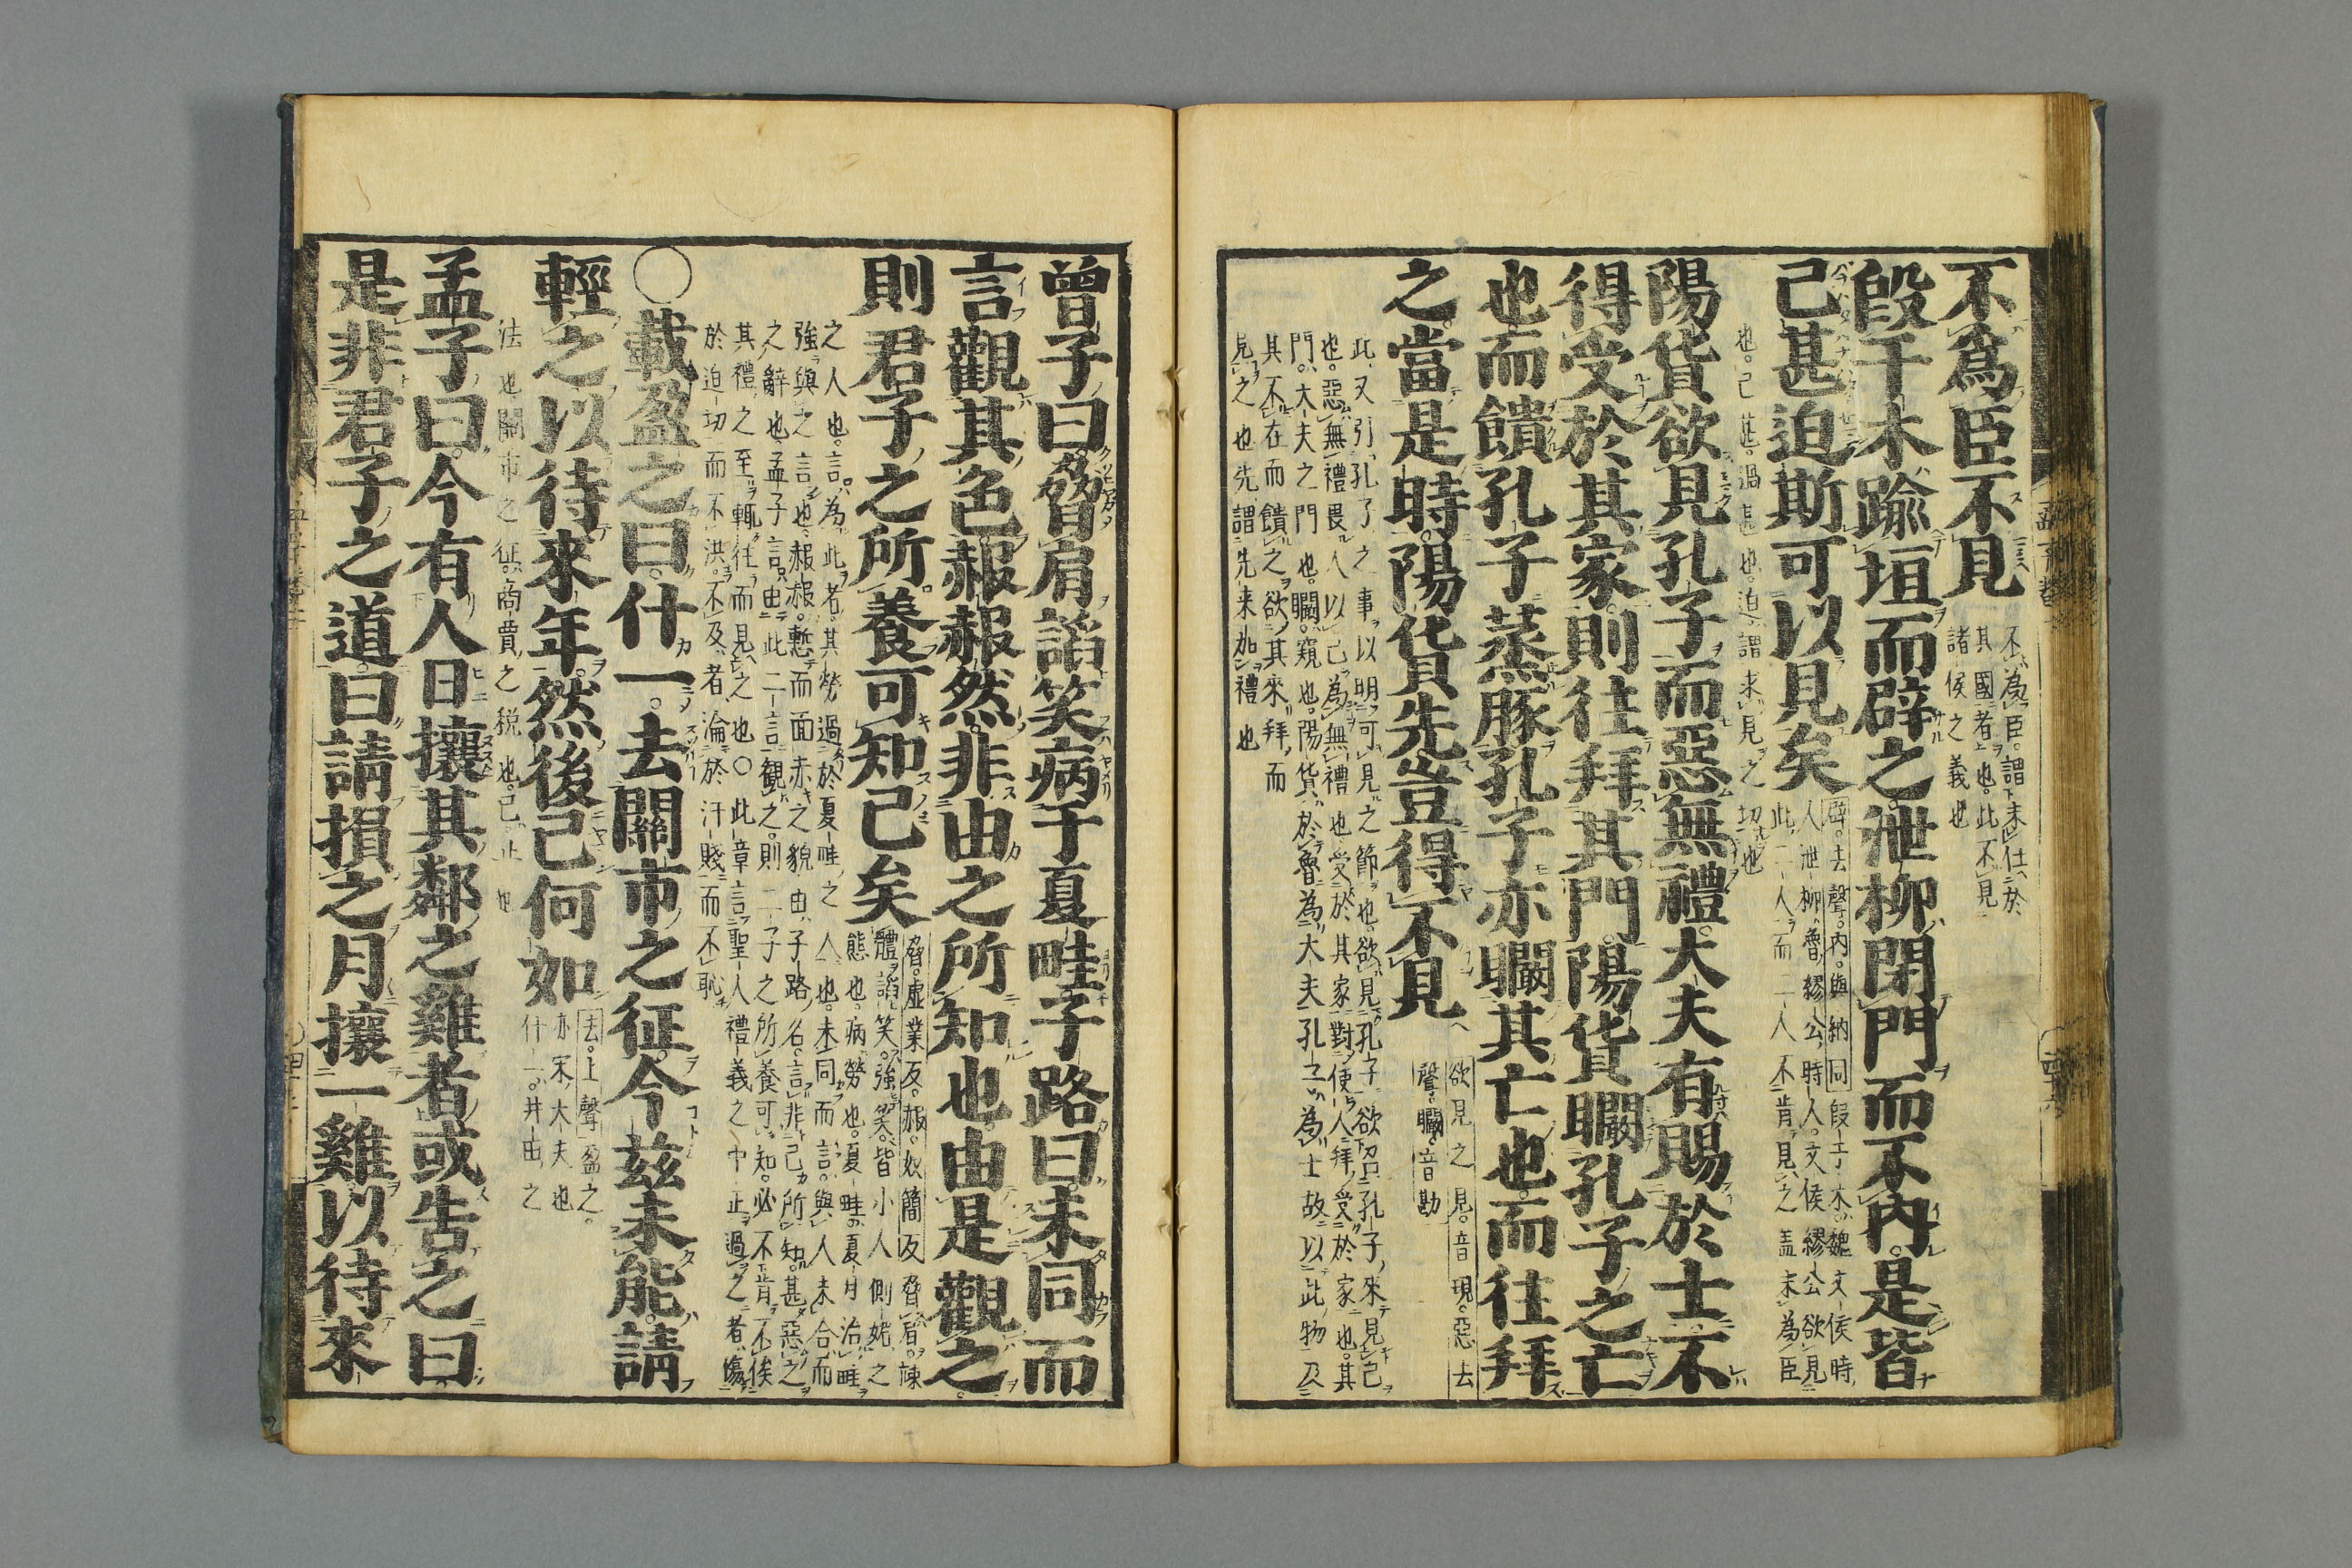 不爲臣不見
不為臣。謂未仕於
其國者也。此不見
諸侯之義也
段干木踰垣而辟之。泄柳閉門而不內。是皆
已甚迫斯可以見矣
辟。去聲。內。與納同 段干木。魏文侯時
人泄柳。魯繆公時人。文侯繆公欲見
此二人。而二人不肯見之。盖未為臣
也。已甚。過甚也。迫。謂求見之切也
陽貨欲見孔子而惡無禮。大夫有賜於士。不
得受於其家。則往拜其門。陽貨矙孔子之亡
也而饋孔子蒸豚。孔子亦矙其亡也。而往拜
之。當是時。陽貨先豈得不見
欲見之見。音現。惡去
聲。矙。音勘
此又引孔子之事以明可見之節也。欲見孔子欲召孔子來見己
也。惡無禮畏人以己為無禮也受於其家對使人拜受於家也。其
門。大夫之門也。矙。窺也。陽貨於魯為大夫孔子為士故以此物及
其不在而饋之。欲其來拜而
見之也先謂先来加禮也
曾子曰。脅肩諂笑病于夏畦。子路曰。未同而
言觀其色赧赧然。非由之所知也。由是觀之。
則君子之所養可知已矣
脅。虛業反。赧。奴簡反 脅肩。竦
體。諂笑。強笑。皆小人側媚之
態也。病勞也。夏畦。夏月治畦
之人也。言為此者。其勞過於夏畦之人也。未同而言。與人未合而
強與之言也。赧赧。慙而面赤之貌由。子路名。言非己所知。甚惡之
之辭也。孟子言。由此二言觀之。則二子之所養可知。必不肯不俟
其禮之至輒往而見之也。○此章言聖人禮義之中正過之者。傷
於迫切而不洪。不及者。淪於汙賤而不恥
○戴盈之曰。什一。去關市之征。今茲未能。請
輕之以待來年。然後已何如
去。上聲 盈之。
亦宋大夫也
什一。井田之
法也關市之征。商賈之税也。已。止也
孟子曰。今有人日攘其鄰之雞者。或告之曰
是非君子之道。曰請損之。月攘一雞以待來